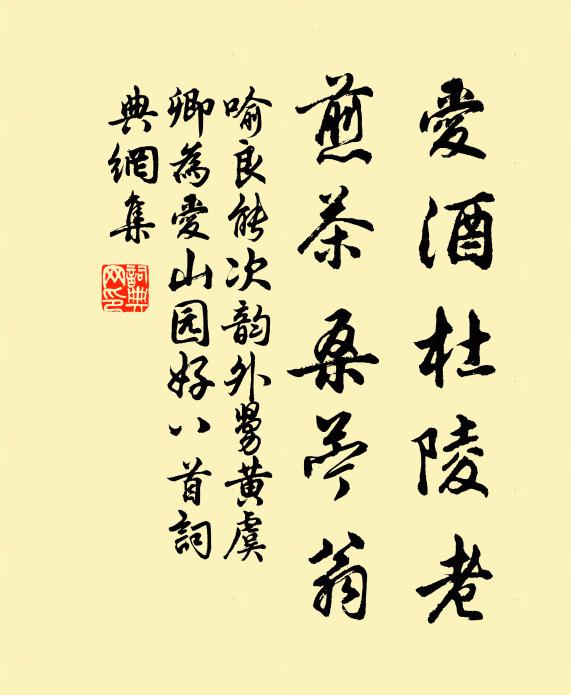 愛酒杜陵老
煎茶桑苧翁
喻良能次韵外舅黃虞
卿為愛山园好八首詞
典網集
詞典
网印